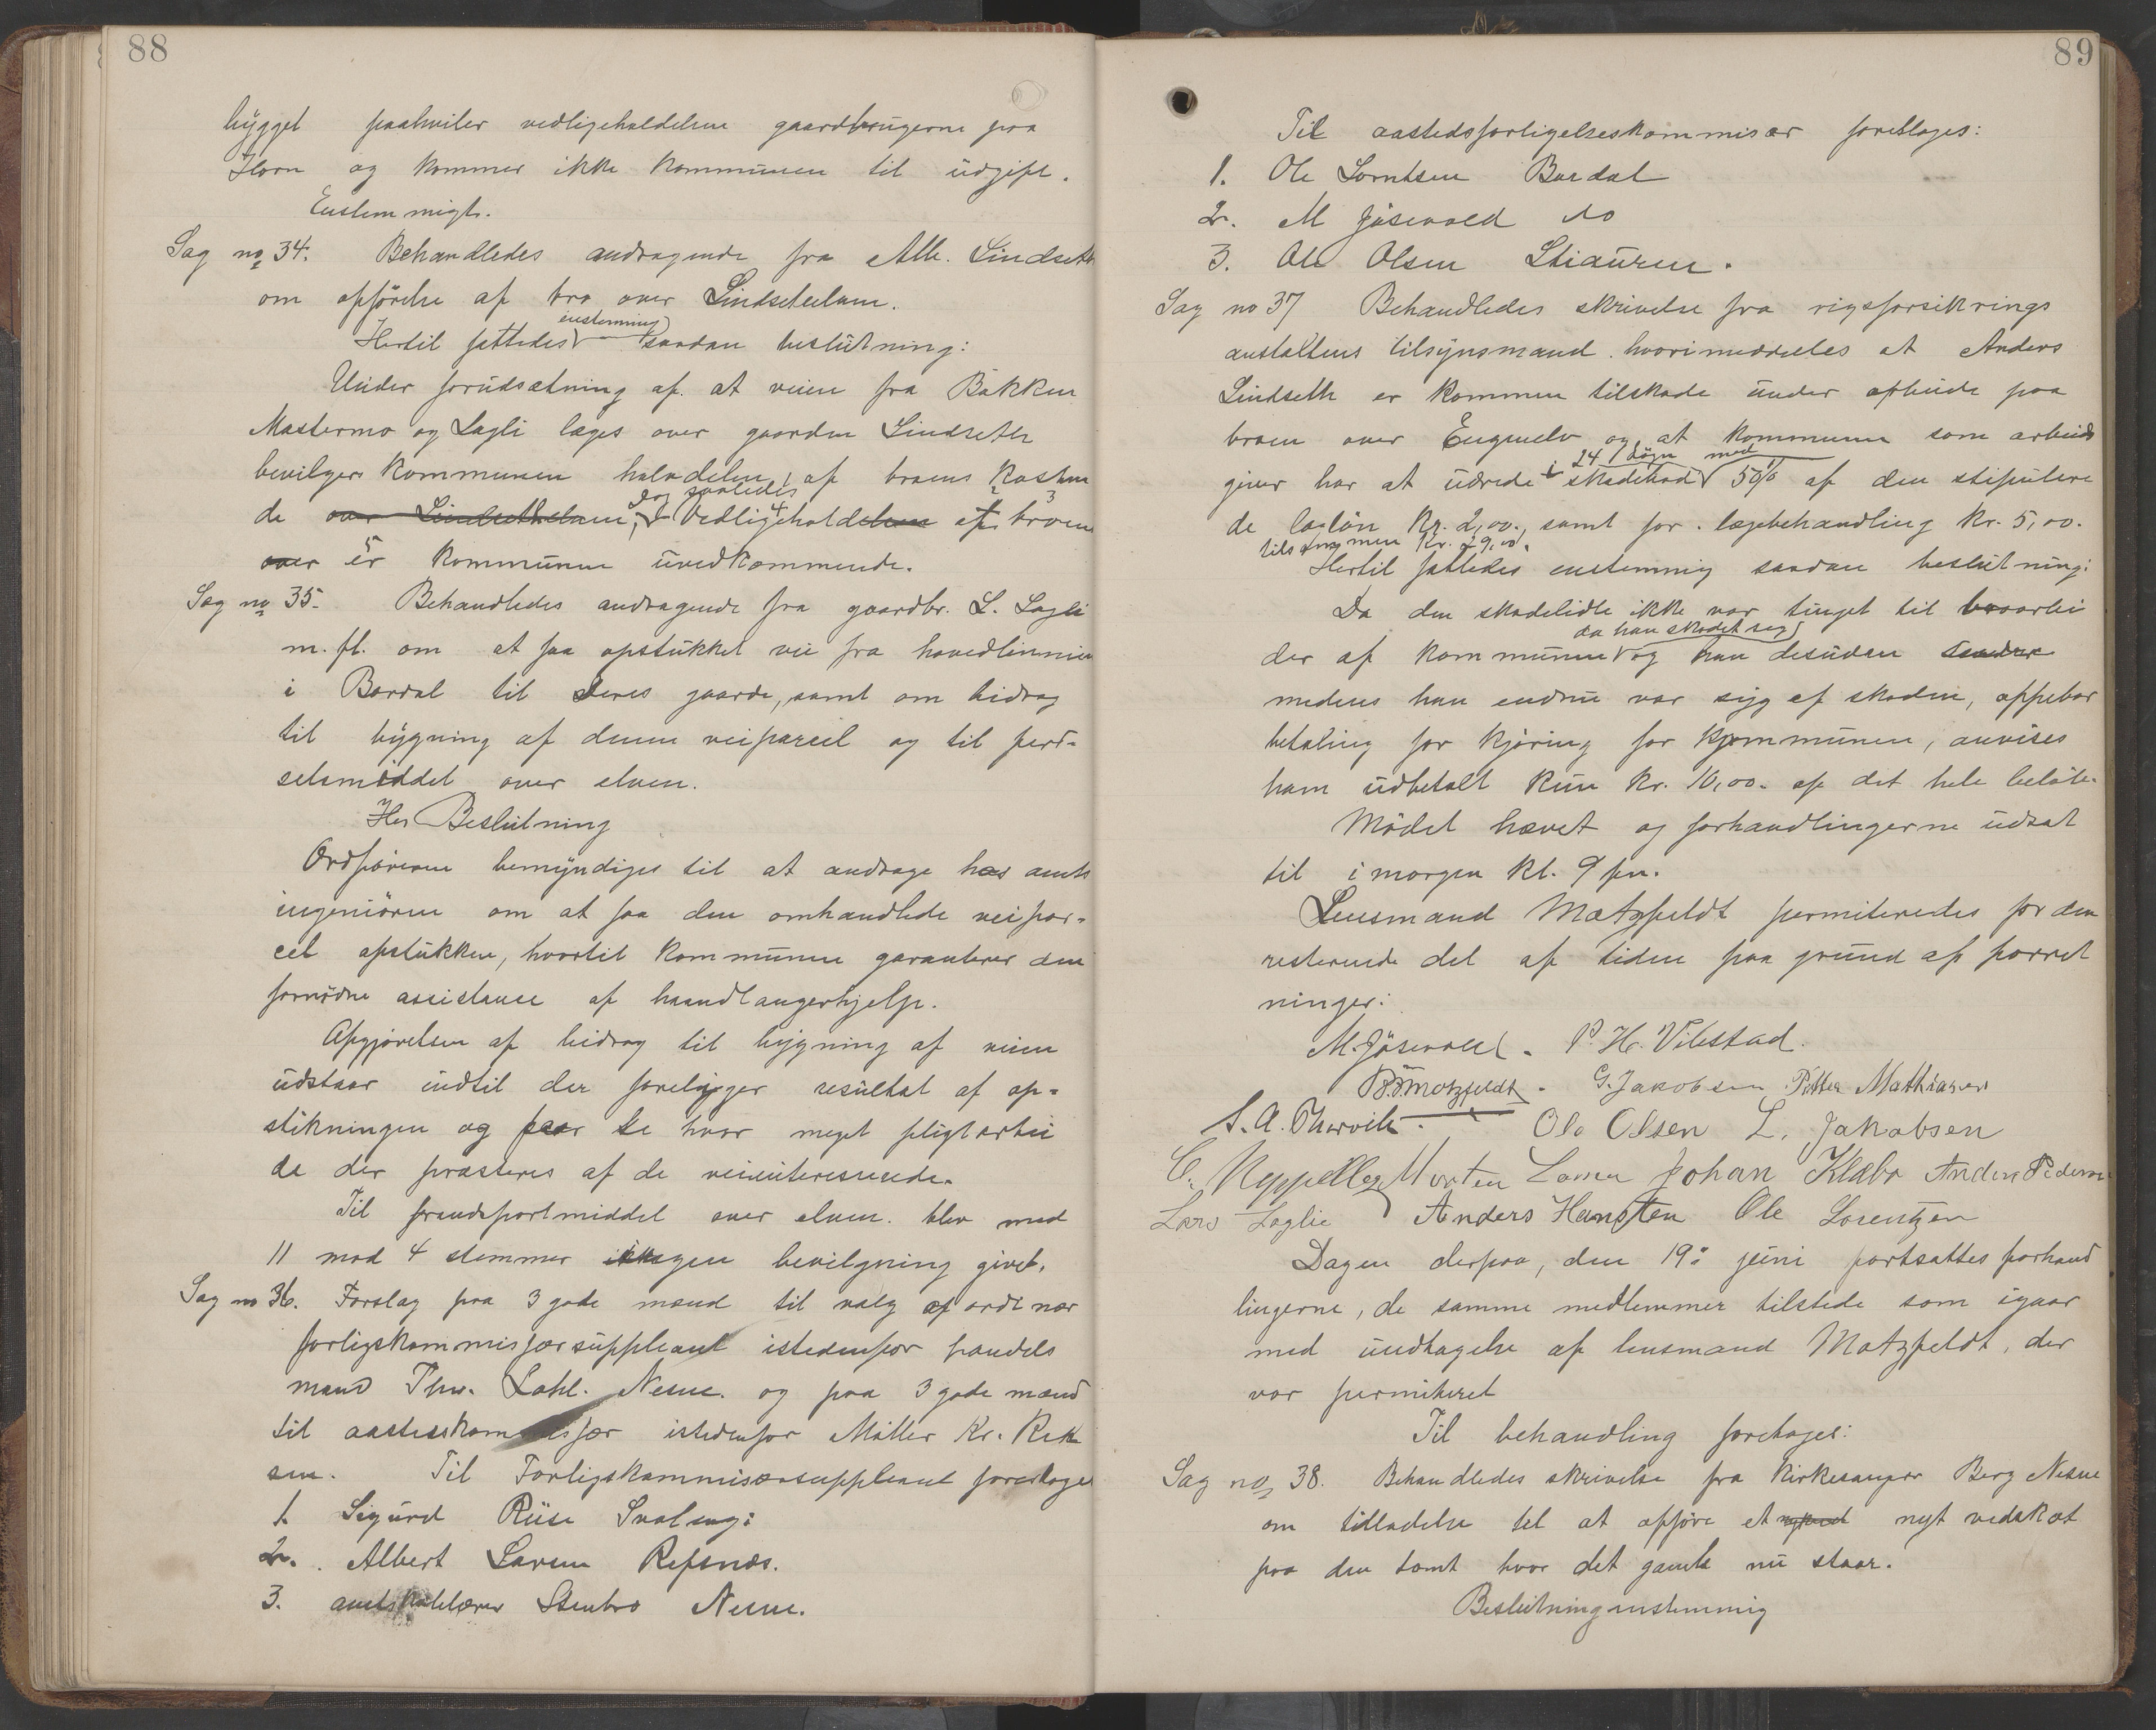 88
bygget paahviler vedligeholdelsen gaardbrugerne paa
Horn og kommer ikke kommunen til udgift.
Enstemmigt.
Sag no 34. Behandledes andragende fra Alb. Lindseth
om opförelse af bro over Lindsethelven.
enstemmig
Hertil fattedes saadan beslutning:
Under forudsætning af at veien fra Bakken
Mastermo og Lagli læges over gaarden Lindseth
bevilger kommunen halvdelen af broens kostende
dog saaledes
de over Lindsethelven, Vedligeholdelsen af broen
over er kommunen uvedkommende.
Sag no 35. Behandledes andragende fra gaardbr. L. Lagli
m. fl. om at faa opstukket vei fra hovedlinnien
i Bardal til deres gaarde, samt om bidrag
til bygning af denne veiparcel og til ferd-
selsmiddel over elven.
Her Beslutning
Ordföreren bemyndiges til at andrage hos amts
ingeniören om at faa den omhandlede veipar-
cel opstukken, hvortil kommunen garanterer den
fornödne assistance af haandlangerhjelp.
Afgjörelsen af bidrag til bygning af veien
udstaar indtil der foreligger resultat af op-
stikningen og faar se hvor meget pligtarbei
de der præsteres af de veiinteresserede.
Til fremdsportmiddel over elven blev med
11 mod 4 stemmer ingen bevilgning givet.
Sag no 36. Forslag paa 3 gode mænd til valg af ordinær
forligskommisjærsuppleant istedenfor handels
mand Thv. Dahl. Nesne. og paa 3 gode mænd
til aastedskommisjær istedenfor Möller Kr. Rek
sen. Til Forligskommisærsuppleant foreslages
1 Sigurd Riise Svaleng:
2. Albert Larsen Refsnæs.
3. amtskolelærer Stenbro Nesne.
89
Til aastedsforligelseskommisær foreslages:
1. Ole Lorntsen Bardal
2. M Jösevold do
3. Ole Olsen Stiauren.
Sag no 37 Behandledes skrivelse fra rigsforsikrings
anstaltens tilsynsmand hvori meddeles at Anders
Lindseth er kommen tilskade under arbeide paa
broen over Engeelv og at kommunen som arbeids
24 dögn med
giver har at udrede i skadebod 50% af den stipulere
de daglön kr. 2,00, samt for lægebehandling kr. 5,00.
tilsammen kr. 29,00.
Hertil fattedes enstemmig saadan beslutning:
Da den skadelidte ikke var tinget til broarbei
da han skadet seg
der af kommunen og han desuden
medens han endnu var syg af skaden, oppebar
betaling for kjöring for kommunen, anvises
ham udbetalt kun kr. 10,00 af det hele belöb.
Mödet hævet og forhandlingerne udsat
til imorgen kl. 9 fm.
Lensmand Motzfeldt permiteredes for den
resterende del af tiden paa grund af forret
ninger:
M. Jösevold. P. H. Vibstad.
Motzfeldt. G. Jakobsen Petter Mathiasen
S. A. Ole Olsen L. Jakobsen
Morten Johan Klæbo Anders Pedersen
Lars Laglie Anders Hansten Ole Lorentzen
Dagen derpaa, den 19. juni fortsattes forhand
lingerne, de samme medlemmer tilstede som igaar
med undtagelse af lensmand Motzfeldt, der
var permiteret
Til behandling foretoges:
Sag no 38. Behandledes skrivelse fra kirkesanger Berg Nesne
om tilladelse til at opföre et nyt vedskot
paa den tomt hvor det gamle nu staar.
Beslutning enstemmig